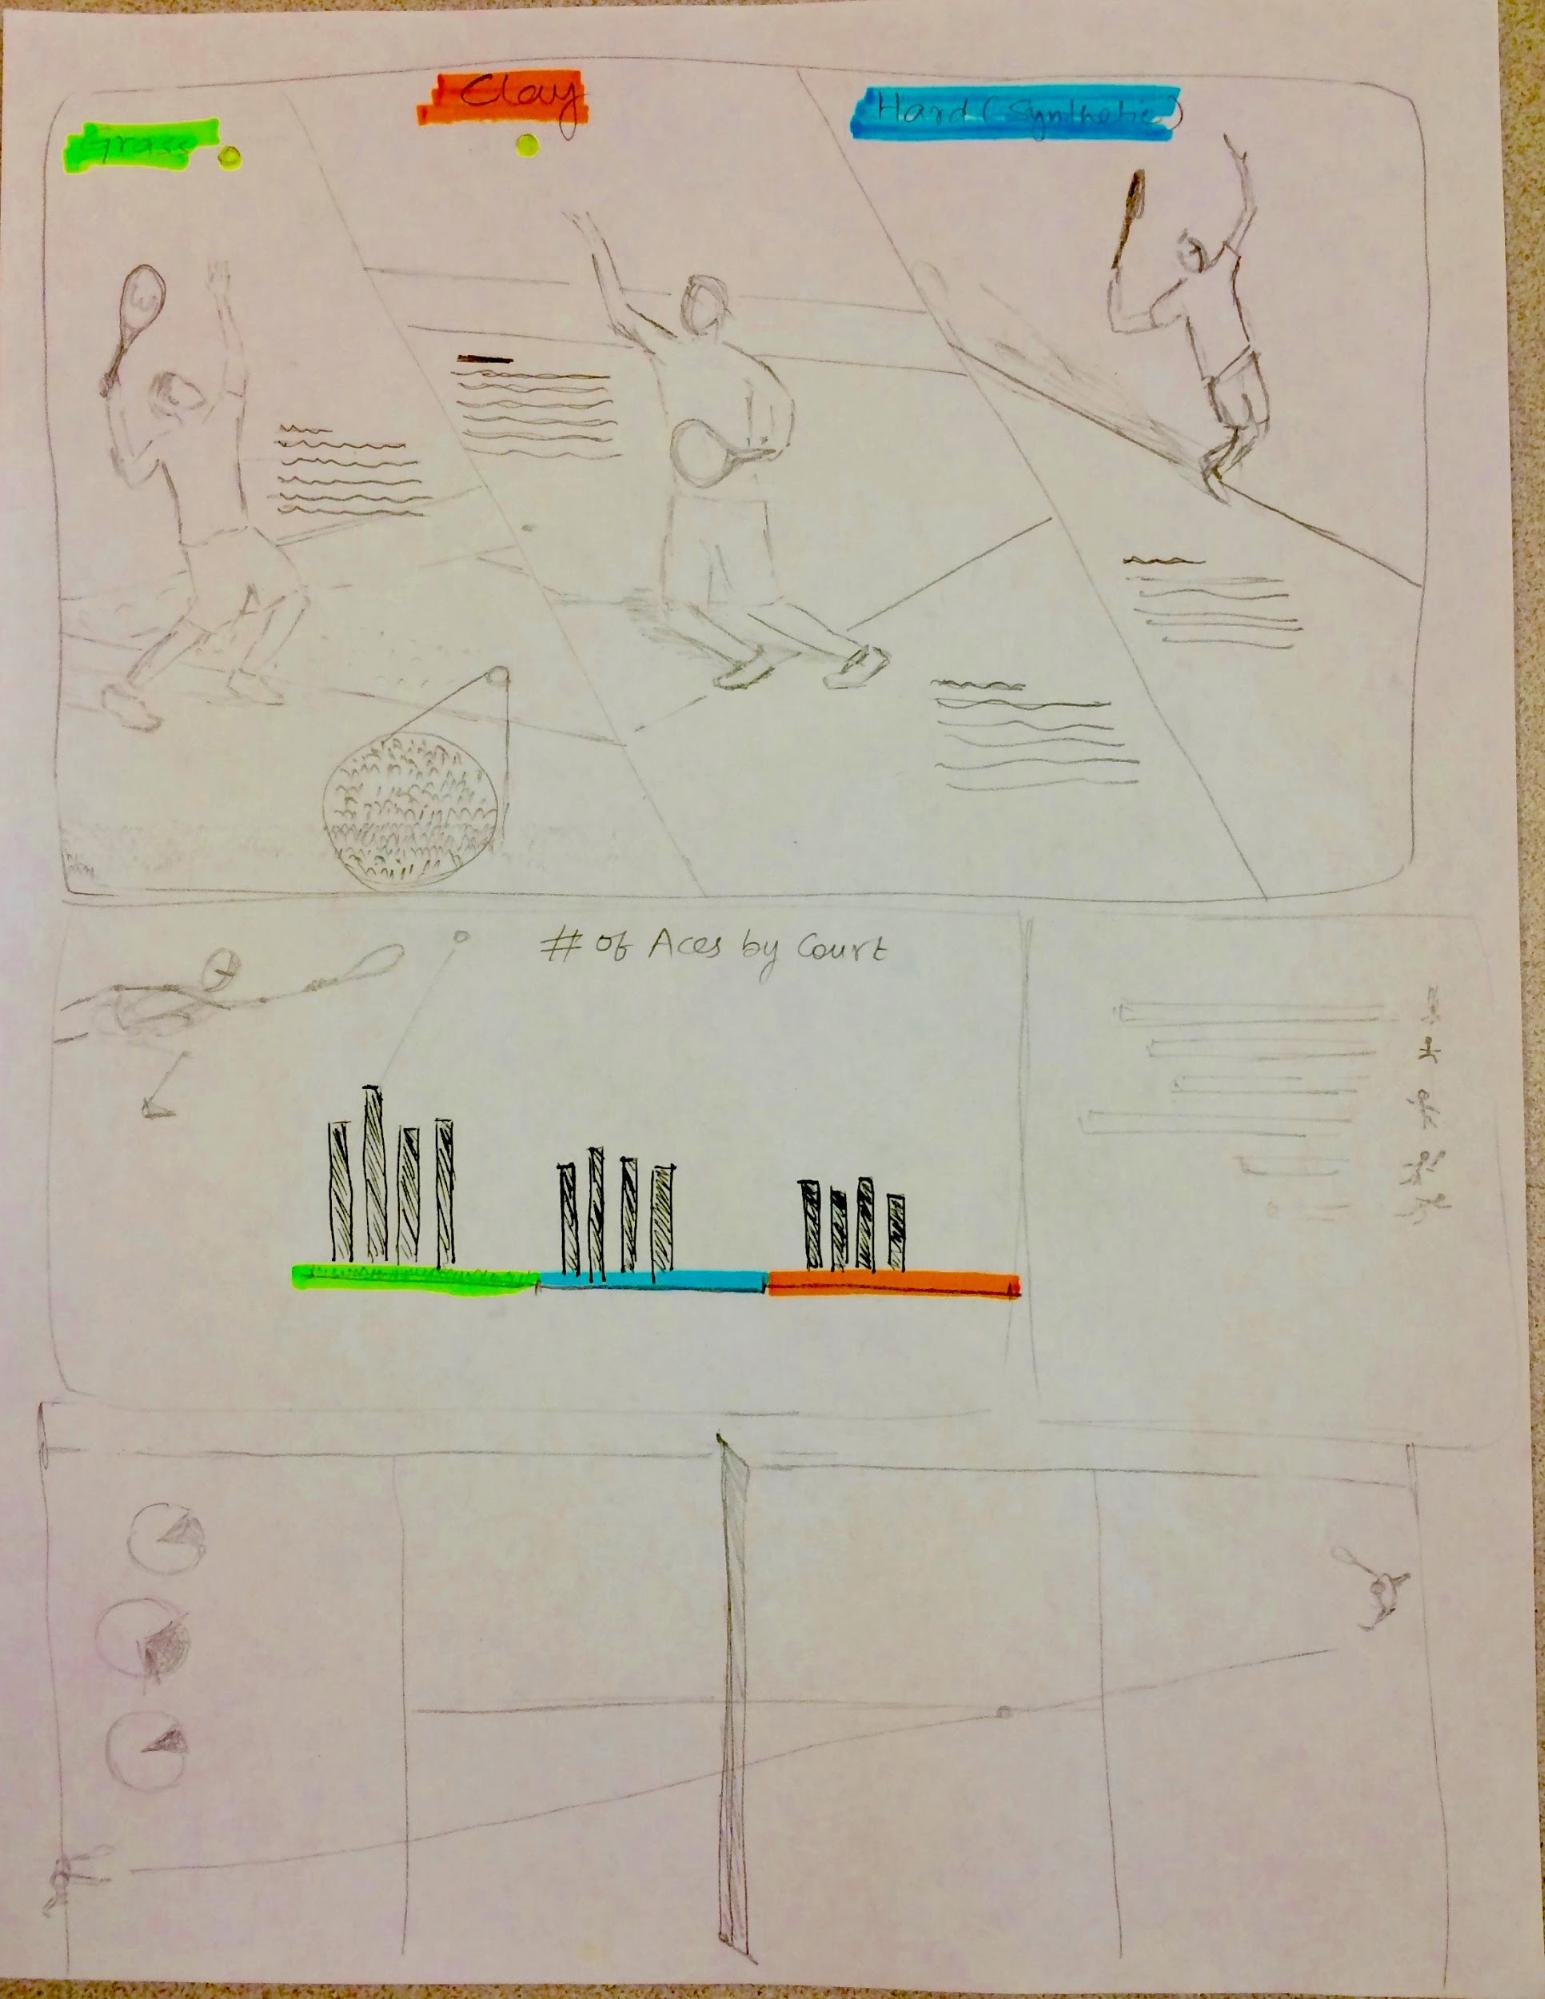 Grass
Clay
Hard (Synthetic)
# of Aces by Court